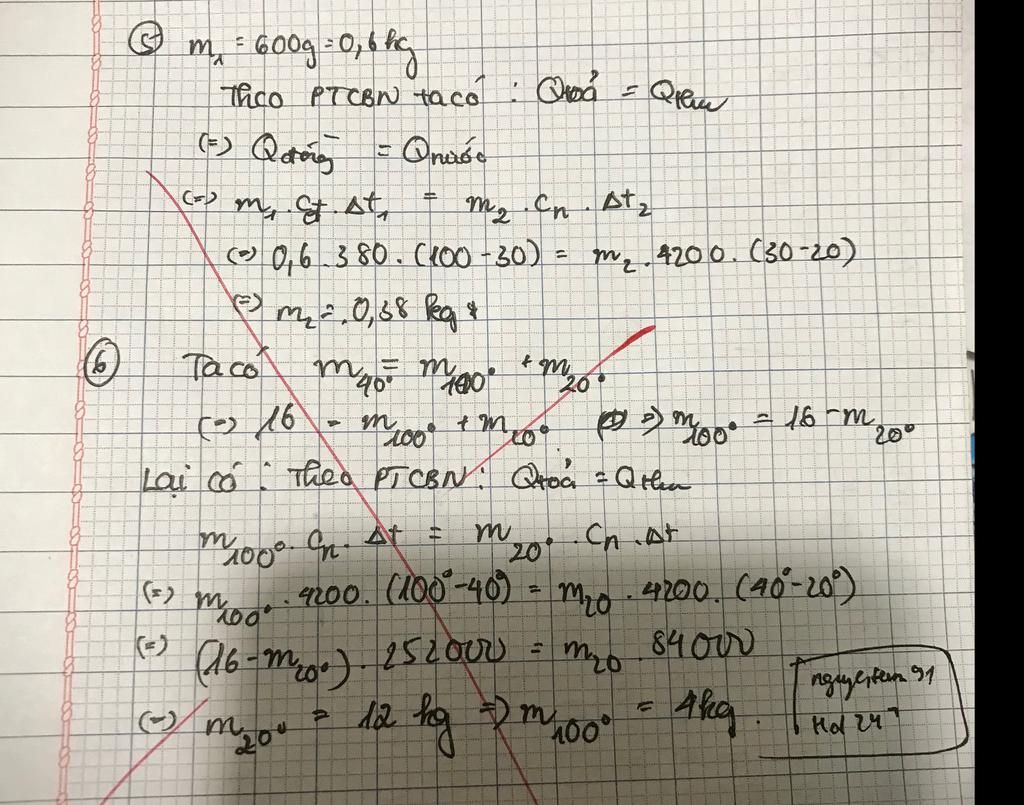 ⑤ m₁ = 600g = 0,6 kg
Theo PTCBN ta có : Qtoả = Qthu
(=) Qđồng = Qnước
(=) m₁ . Cđ . Δt₁ = m₂ . Cn . Δt₂
(=) 0,6 . 380 . (100 - 30) = m₂ . 4200 . (30 - 20)
(=) m₂ = 0,38 kg
⑥ Ta có m₄₀° = m₁₀₀° + m₂₀°
(=) 16 = m₁₀₀° + m₂₀° => m₁₀₀° = 16 - m₂₀°
Lại có : Theo PTCBN : Qtoả = Qthu
m₁₀₀° . Cn . Δt = m₂₀° . Cn . Δt
(=) m₁₀₀° . 4200 . (100° - 40°) = m₂₀ . 4200 . (40° - 20°)
(=) (16 - m₂₀°) . 252000 = m₂₀ . 84000
(=) m₂₀° = 12 kg => m₁₀₀° = 4kg.
91
Hd 247